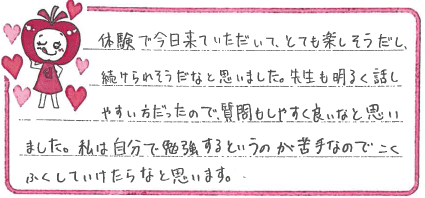 体験で今日来ていただいて、とても楽しそうだし、
続けられそうだなと思いました。先生も明るく話し
やすい方だったので、質問もしやすく良いなと思い
ました。私は自分で勉強するというのが苦手なのでこく
ふくしていけたらなと思います。